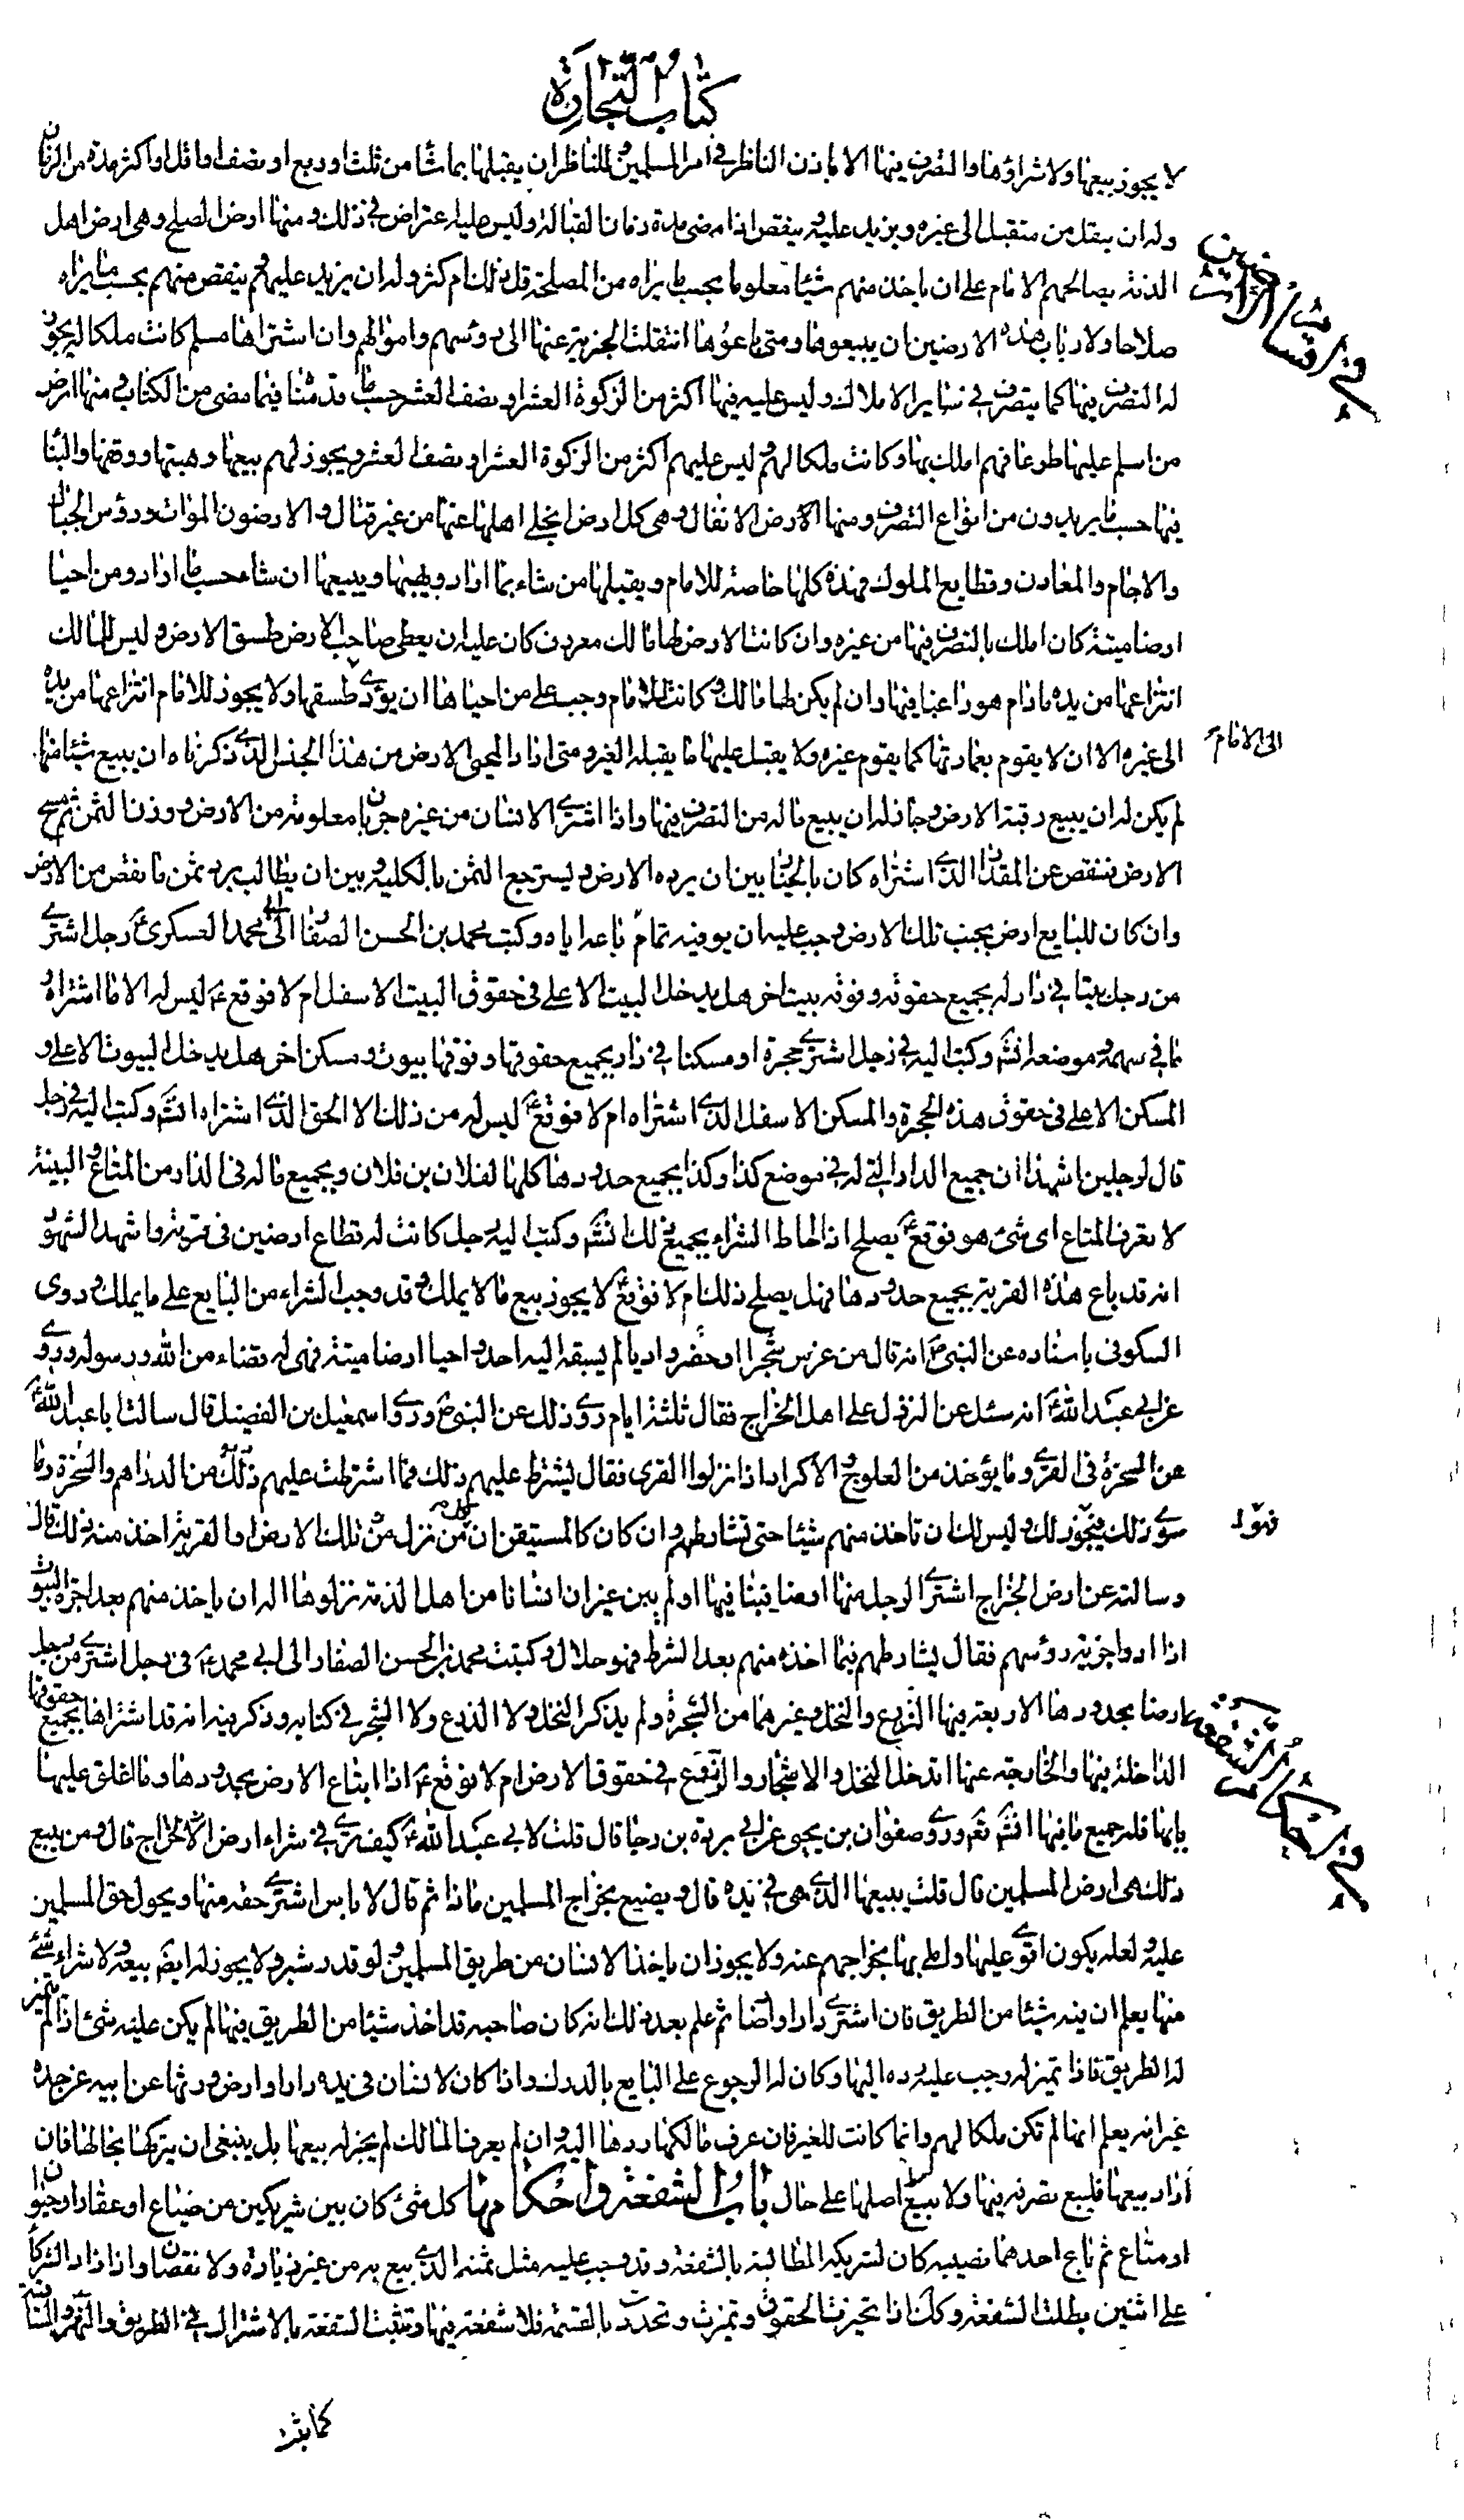 كتاب التجارة
لا يجوز بيعها ولا شراؤها والتصرف فيها الا باذن الناظر في امر المسلمين وللناظر ان يقبلها بما شاء من ثلث او ربع او نصف او ما قل او اكثر مدة من الزمان
وله ان ينقل من متقبل الى غيره ويزيد عليه وينقص اذا مضى مدة زمان القبالة وليس عليه اعتراض في ذلك ومنها ارض الصلح وهى ارض اهل
الذمة يصالحهم الامام على ان ياخذ منهم شيئا معلوما بحسب ما يراه من المصلحة قل ذلك ام كثر وله ان يزيد عليهم وينقص منهم بحسب ما يراه
في اقسام الارضين
صلاحا ولارباب هذه الارضين ان يبيعوها ومتى باعوها انتقلت الجزية عنها الى رؤسهم واموالهم وان اشتراها مسلم كانت ملكا له يجوز
له التصرف فيها كما يتصرف في ساير الاملاك وليس عليه فيها اكثر من الزكوة العشر او نصف العشر حسب ما قدمناه فيما مضى من الكتاب ومنها ارض
من اسلم عليها طوعا فهم املك بها وكانت ملكا لهم وليس عليهم اكثر من الزكوة العشر او نصف العشر ويجوز لهم بيعها وهبتها ووقفها والبناء
فيها حسب ما يريدون من انواع التصرف ومنها الارض الانفال وهى كل ارض انجلى اهلها عنها من غير قتال والارضون الموات ورؤس الجبال
والاجام والمعادن وقطايع الملوك فهذه كلها خاصة للامام ويقبلها من شاء بما اراد ويهبها ويبيعها ان شاء حسب ما اراد ومن احيا
ارضا ميتة كان املك بالتصرف فيها من غيره وان كانت الارض لها مالك معروف كان عليه ان يعطى صاحب الارض طسق الارض وليس للمالك
انتزاعها من يده ما دام هو راغبا فيها وان لم يكن لها مالك وكانت للامام وجب على من احياها ان يؤدى طسقها ولا يجوز للامام انتزاعها من يده
الى غيره الا ان لا يقوم بعمارتها كما يقوم غيره ولا يقبل عليها ما يقبله الغير ومتى اراد المحيى الارض من هذا الجنس الذى ذكرناه ان يبيع شيئا منها
الى الامام
لم يكن له ان يبيع رقبة الارض وجاز له ان يبيع ما له من التصرف فيها واذا اشترى الانسان من غيره جربانا معلومة من الارض ووزن الثمن ثم مسح
الارض فنقص عن المقدار الذى اشتراه كان بالخيار بين ان يرد الارض ويسترجع الثمن بالكلية وبين ان يطالب برد ثمن ما نقص من الارض
وان كان للبايع ارض بجنب تلك الارض وجب عليه ان يوفيه تمام ما باعه اياه وكتب محمد بن الحسن الصفار الى ابى محمد العسكرى ع رجل اشترى
من رجل بيتا في دار له بجميع حقوقه وفوقه بيت اخر هل يدخل البيت الاعلى في حقوق البيت الاسفل ام لا فوقع ع ليس له الا ما اشتراه
بما في سهمه وموضعه انشاء الله وكتب اليه في رجل اشترى حجرة او مسكنا في دار بجميع حقوقها وفوقها بيوت ومسكن اخر هل يدخل البيوت الاعلى و
المسكن الاعلى في حقوق هذه الحجرة والمسكن الاسفل الذى اشتراه ام لا فوقع ع ليس له من ذلك الا الحق الذى اشتراه انشاء الله وكتب اليه في رجل
قال لرجلين اشهدا ان جميع الدار التى له في موضع كذا وكذا بجميع حدودها كلها لفلان بن فلان وجميع ما له في الدار من المتاع والبينة
لا تعرف المتاع اى شئ هو فوقع ع يصلح اذا احاط الشراء بجميع ذلك انشاء الله وكتب اليه رجل كانت له قطاع ارضين في قرية واشهد الشهود
انه قد باع هذه القرية بجميع حدودها فهل يصلح ذلك ام لا فوقع ع لا يجوز بيع ما لا يملك وقد وجب الشراء من البايع على ما يملك وروى
السكونى باسناده عن النبى ص انه قال من غرس شجرا او حفر واديا لم يسبقه اليه احد او احيا ارضا ميتة فهى له قضاء من الله ورسوله وروى
عن ابى عبد الله ع انه سئل عن النزول على اهل الخراج فقال ثلثة ايام روى ذلك عن النبى ص وروى اسمعيل بن الفضل قال سالت ابا عبد الله ع
عن السخرة في القرى وما يؤخذ من العلوج والاكراد اذا نزلوا القرى فقال يشترط عليهم ذلك فما اشترطت عليهم من الدراهم والسخرة وما
سوى ذلك فيجوز لك وليس لك ان تاخذ منهم شيئا حتى تشارطهم وان كان كالمستيقن ان من نزل من تلك الارض او القرية اخذ منه ذلك قال
وسالته عن ارض الخراج اشترى الرجل منها ارضا فبنا فيها او لم يبن غير ان اناسا من اهل الذمة نزلوها اله ان ياخذ منهم بعد اجرة البيوت
اذا ادوا جزية رؤسهم فقال يشارطهم فما اخذه منهم بعد الشرط فهو حلال وكتبت محمد بن الحسن الصفار الى ابى محمد ع في رجل اشترى من رجل
ارضا بحدودها الاربعة فيها الزرع والنخل وغيرهما من الشجرة ولم يذكر النخل ولا الزرع ولا الشجر في كتابه وذكر فيه انه قد اشتراها بجميع حقوقها
في احكام الشفعة
الداخلة فيها والخارجة عنها اتدخل النخل والاشجار والزرع في حقوق الارض ام لا فوقع ع اذا ابتاع الارض بحدودها وما اغلق عليها
بابها فله جميع ما فيها انشاء الله تعالى وروى صفوان بن يحيى عن ابى بردة بن رجا قال قلت لابى عبد الله ع كيف ترى في شراء ارض الخراج قال ومن يبيع
ذلك هى ارض المسلمين قال قلت يبيعها الذى هى في يده قال ويصنع بخراج المسلمين ماذا ثم قال لا باس اشترى حقه منها ويحول حق المسلمين
عليه ولعله يكون اقوى عليها واملى بها بخراجهم عنه ولا يجوز ان ياخذ الانسان من طريق المسلمين ولو قدر شبر ولا يجوز له ايضا بيعه ولا شراء شئ
منها يعلم ان فيه شيئا من الطريق فان اشترى دارا او ارضا ثم علم بعد ذلك انه كان صاحبه قد اخذ شيئا من الطريق فيها لم يكن عليه شئ اذا لم يتميز
له الطريق فاذا تميز له وجب عليه رده اليها وكان له الرجوع على البايع بالدرك واذا كان لانسان في يده دار او ارض ورثها عن ابيه عن جده
غير انه يعلم انها لم تكن ملكا لهم وانما كانت للغير فان عرف مالكها ردها اليه وان لم يعرف المالك لم يجز له بيعها بل ينبغى ان يتركها بحالها فان
اراد بيعها فليبع تصرفه فيها ولا يبيع اصلها على حال باب الشفعة واحكامها كل شئ كان بين شريكين من ضياع او عقار او حيوان
او متاع ثم باع احدهما نصيبه كان لشريكه المطالبة بالشفعة وقد وجب عليه مثل ثمنه الذى بيع به من غير زيادة ولا نقصان واذا زاد الشركاء
على اثنين بطلت الشفعة وكذا اذا تحيزت الحقوق وتميزت وتحددت بالقسمة فلا شفعة فيها وتثبت الشفعة بالاشتراك في الطريق والنهر والساقية
كما يثبت